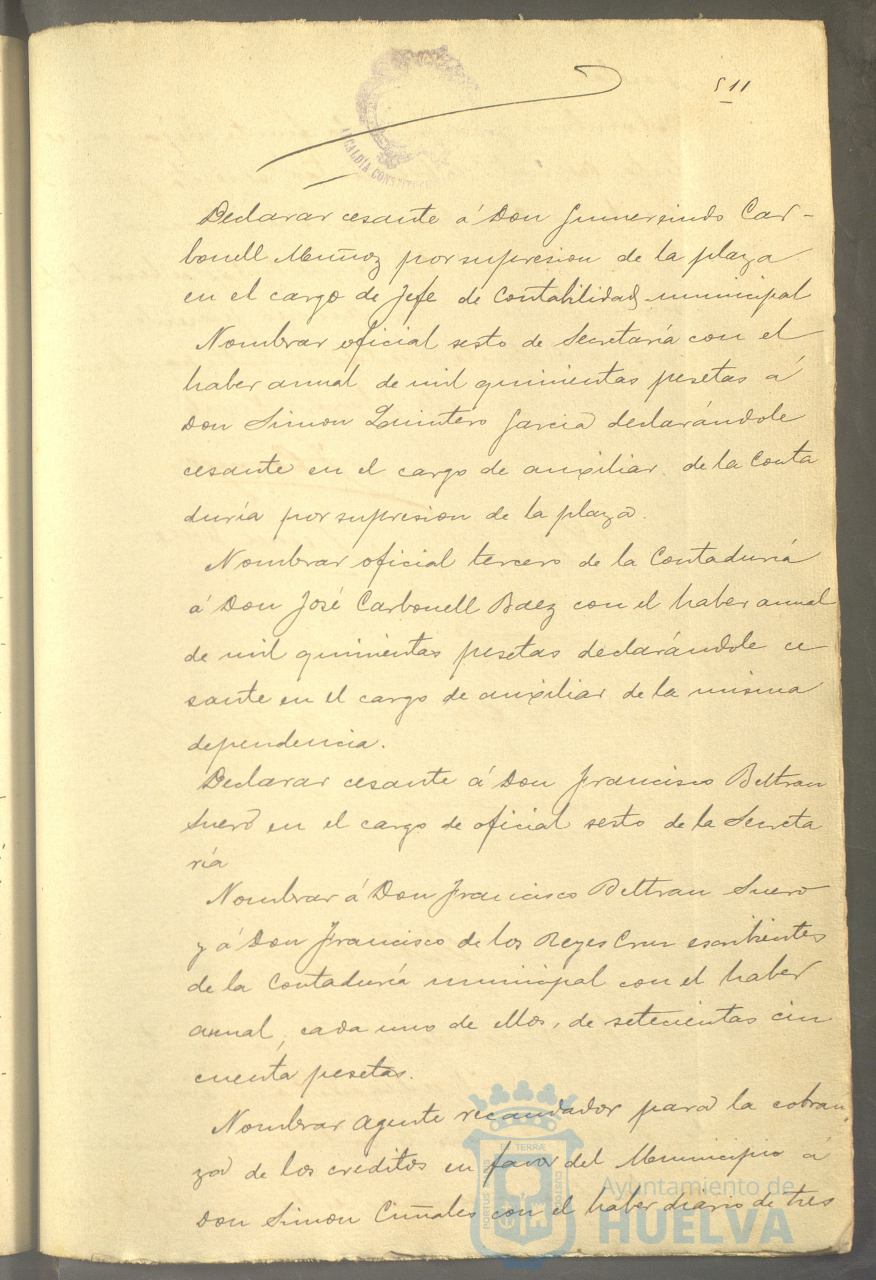 511
ALCALDÍA CONSTITUCIONAL
Declarar cesante á Don Gumersindo Car-
bonell Muñoz por supresion de la plaza
en el cargo de Jefe de Contabilidad municipal
Nombrar oficial sesto de Secretaría con el
haber annal de mil quinientas pesetas á
Don Simon Quintero Garcia declarándole
cesante en el cargo de auxiliar de la Conta
duría por supresion de la plaza.
Nombrar oficial tercero de la Contaduría
á Don José Carbonell Baez con el haber annal
de mil quinientas pesetas declarándole ce
sante en el cargo de auxiliar de la misma
dependencia.
Declarar cesante á Don Francisco Beltran
Suero en el cargo de oficial sesto de la Secreta
ría
Nombrar á Don Francisco Beltran Suero
y á Don Francisco de los Reyes Cruz escribientes
de la Contaduría municipal con el haber
annal, cada uno de ellos, de setecientas cin
cuenta pesetas.
Nombrar agente recaudador para la cobran
za de los creditos en favor del Municipio á
Don Simon con el haber diario de tres
Ayuntamiento de
HUELVA